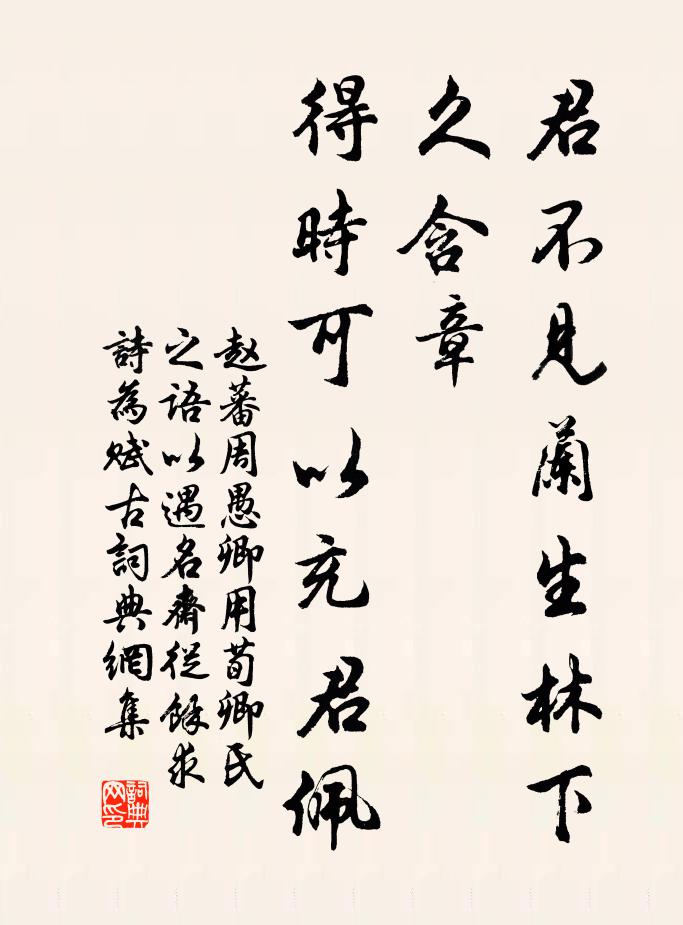 君不見蘭生林下
久含章
得時可以充君佩
赵蕃周愚卿用荀卿氏
之語以遇名齋從餘求
詩為赋古詞典網集
詞典网印